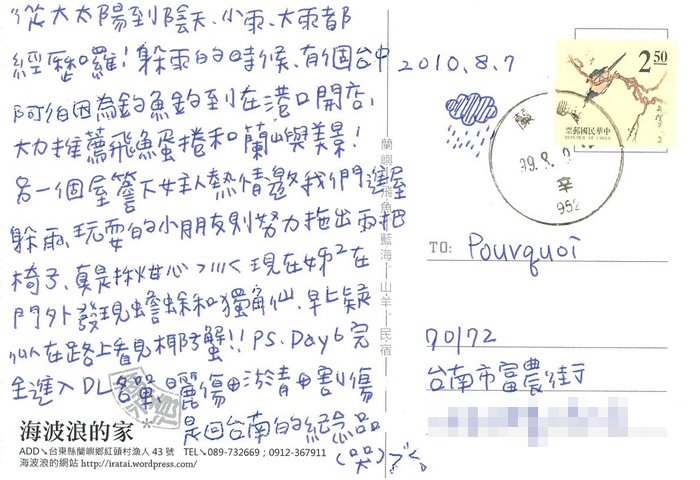 從大太陽到陰天、小雨、大雨都
經歷囉!躲雨的時候、有個台中
阿伯因為釣魚釣到在港口開店,
大力推薦飛魚蛋捲和蘭嶼與美景!
另一個屋簷下女主人熱情邀我們進屋
躲雨,玩耍的小朋友則努力拖出兩把
椅子,真是揪甘心 現在姊2在
門外發現蟾蜍和獨角仙,早上疑
似在路上看見椰子蟹!! PS. Day6 完
全進入DL名單,曬傷+淤青+割傷
是回台南的紀念品
(哭)
2010.8.7
2 50
中華民國郵票
99.8.
952
蘭嶼—飛魚—藍海—山羊—民宿
TO: Pourquoi
70172
台南市富農街
海波浪的家
ADD↘台東縣蘭嶼鄉紅頭村漁人 43 號 TEL↘089-732669 ; 0912-367911
海波浪的網站 http://iratai.wordpress.com/